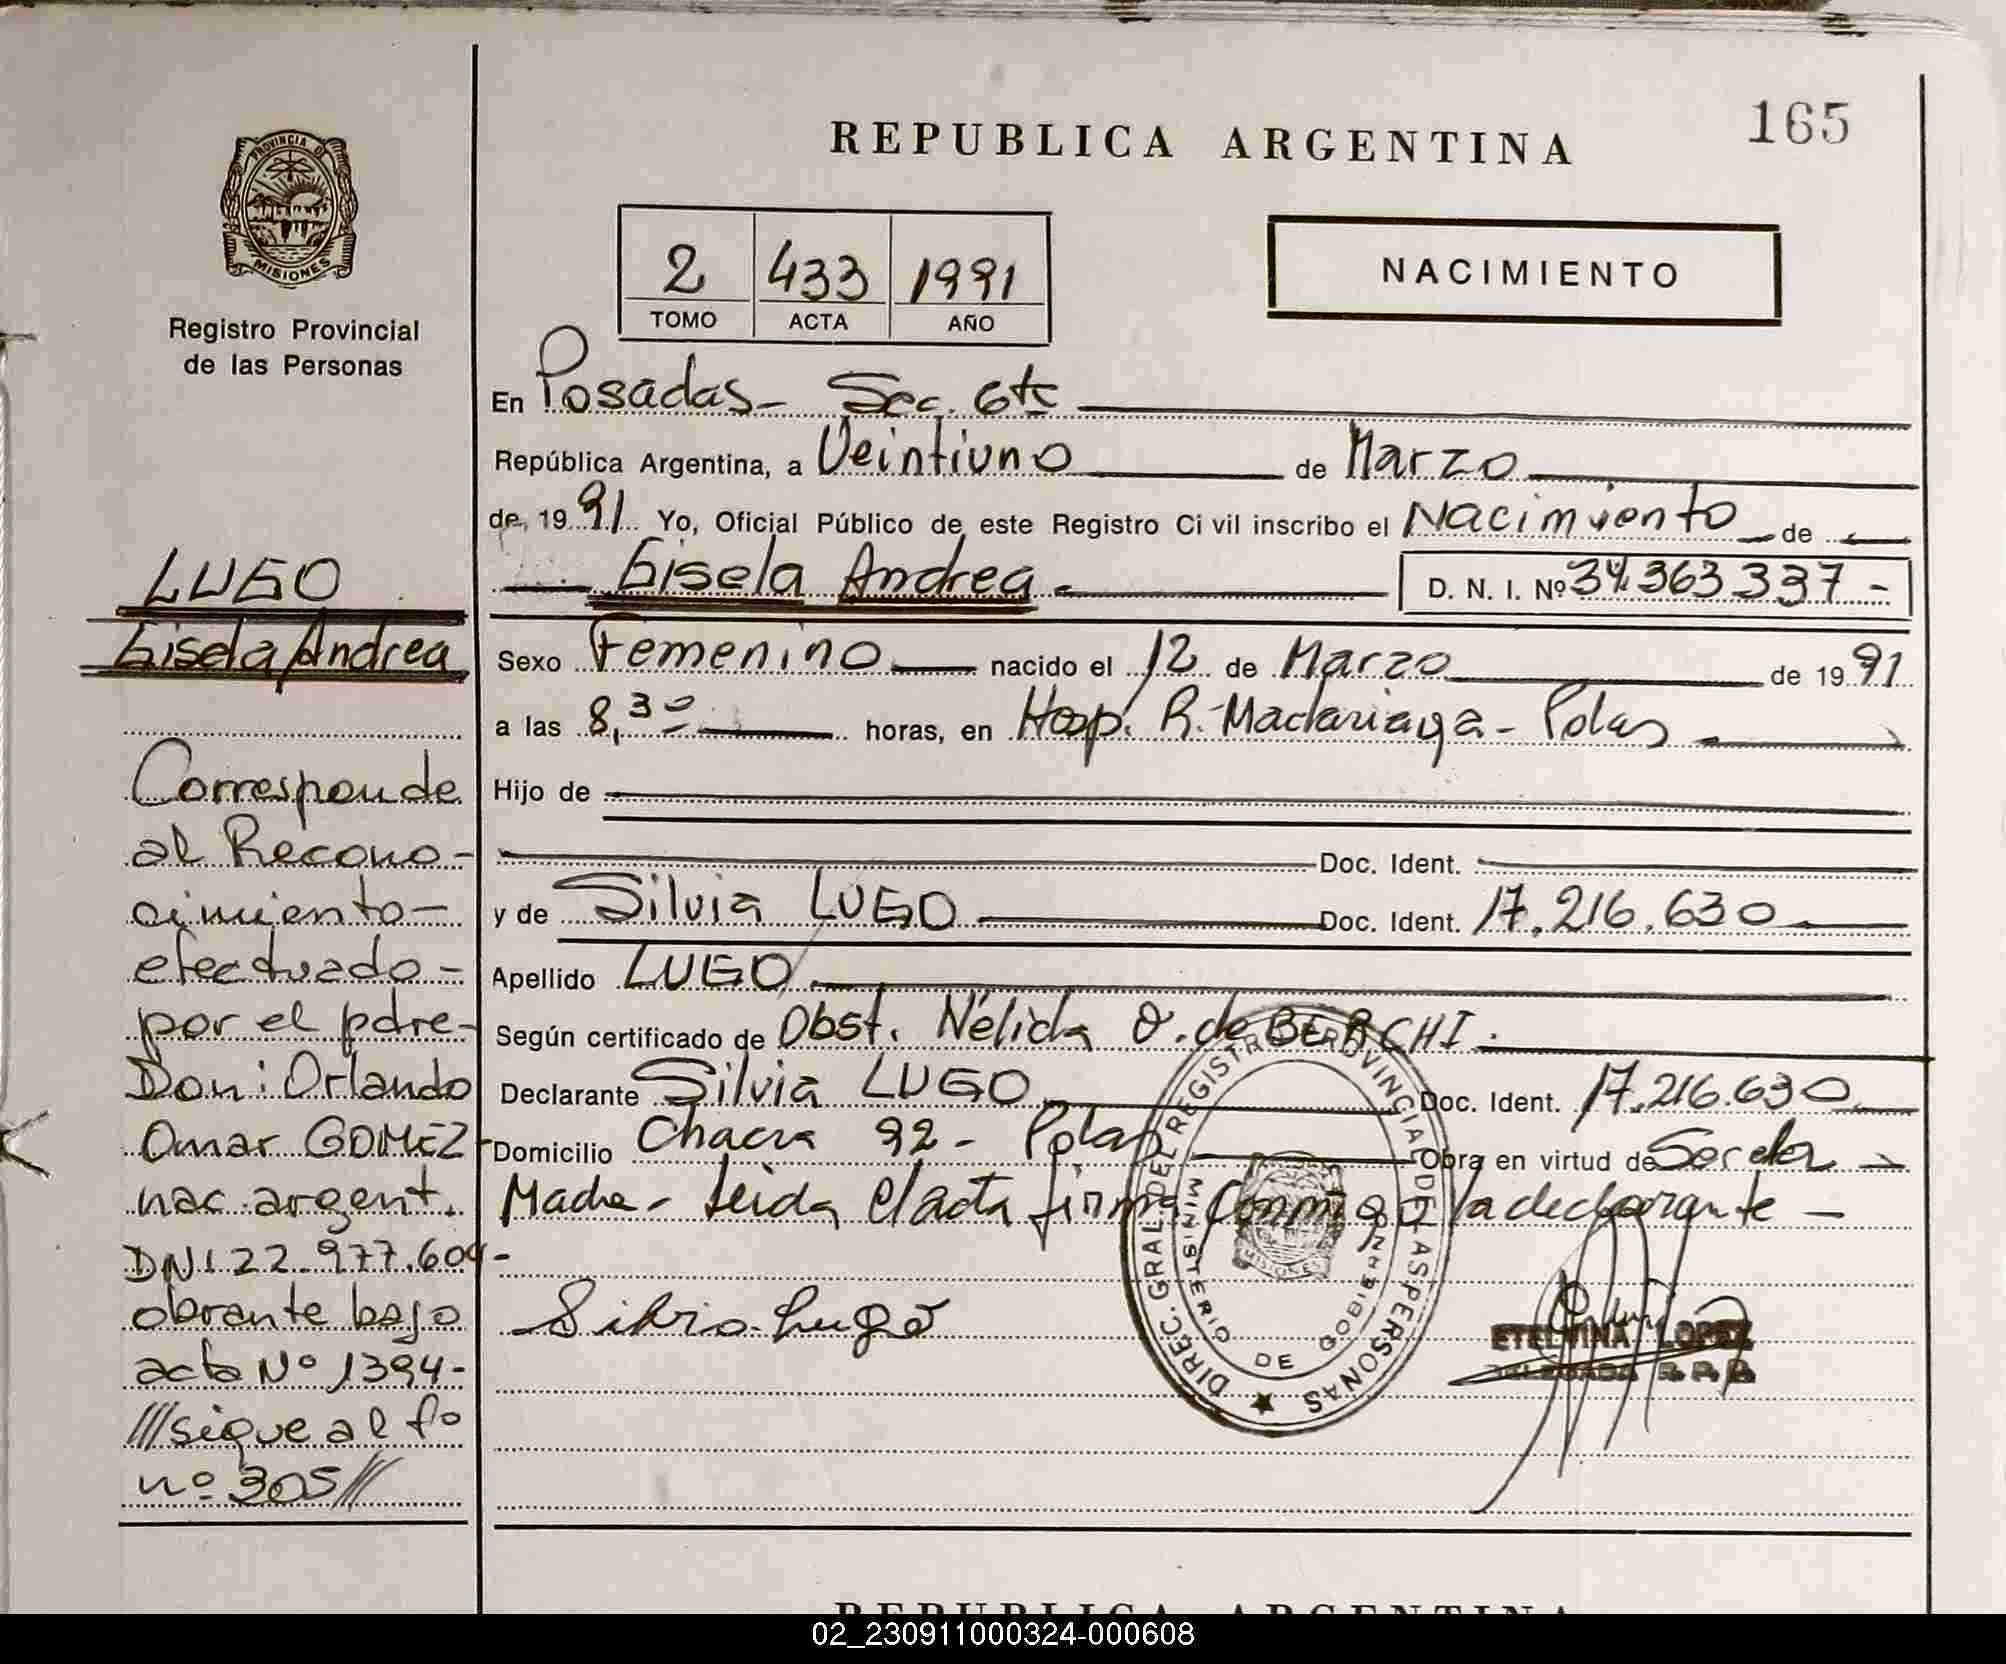 165
REPUBLICA ARGENTINA
PROVINCIA DE
MISIONES
Registro Provincial
de las Personas
2 433 1991
TOMO ACTA AÑO
NACIMIENTO
En Posadas - Sec. 6ta
República Argentina, a Veintiuno de Marzo
de 19 91 Yo, Oficial Público de este Registro Ci vil inscribo el Nacimiento de
Gisela Andrea D. N. I. Nº 34.363.337 -
Sexo Femenino nacido el 12 de Marzo de 19 91
a las 8,30 horas, en Hosp. R. Madariaga - Pdas
Hijo de
Doc. Ident.
y de Silvia LUGO Doc. Ident. 17.216.630
Apellido LUGO
Según certificado de Obst. Nélida O. de BERCHI.
Declarante Silvia LUGO Doc. Ident. 17.216.630
Domicilio Chacra 92 - Pdas Obra en virtud de Ser ela
Madre - Leida el acta firma conmigo la declarante -
Silvia Lugo
ETELVINA LOPEZ
DELEGADA R. P. P.
DIREC. GRAL. DEL REGISTRO PROVINCIAL DE LAS PERSONAS
MINISTERIO DE GOBIERNO
MISIONES
LUGO
Gisela Andrea
Corresponde
al Recono-
cimiento-
efectuado-
por el pdre-
Don: Orlando
Omar GOMEZ-
nac. argent.
DNI 22.977.604-
obrante bajo
acta Nº 1394-
///sigue al fo
nº 305///
REPUBLICA ARGENTINA
02_230911000324-000608